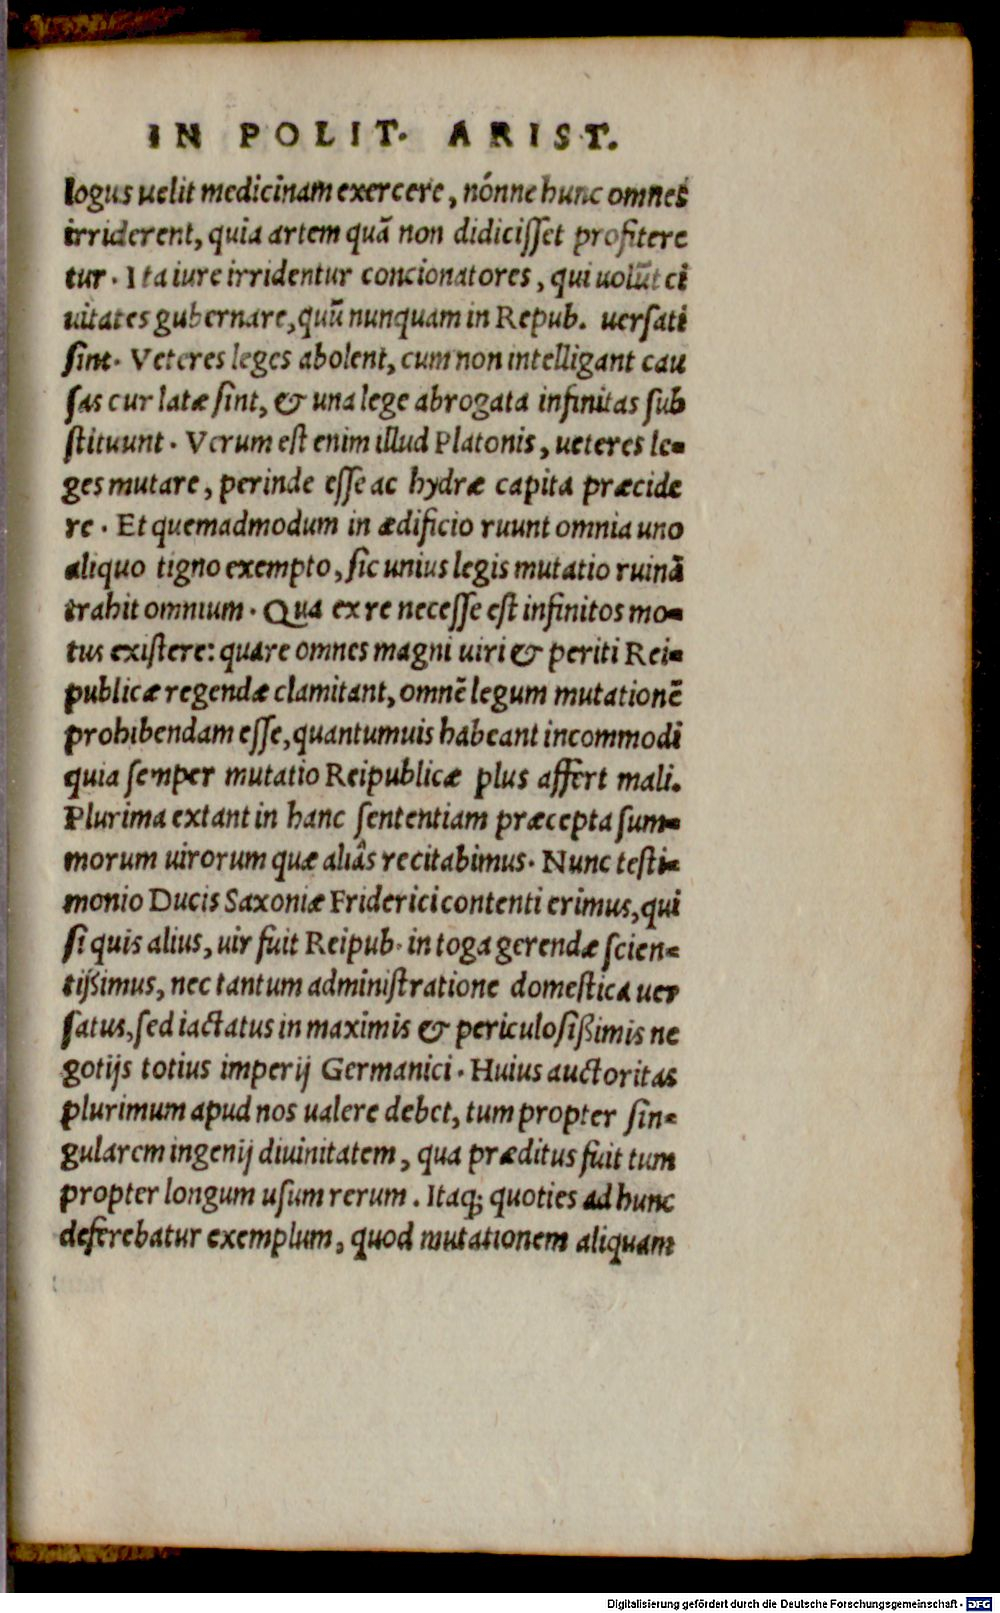 IN POLIT. ARIST.
logus uelit medicinam exercere, nónne hunc omnes
irriderent, quia artem quā non didicisſet profitere
tur. Ita iure irridentur concionatores, qui uolūt ci
uitates gubernare, quū nunquam in Repub. uerſati
ſint. Veteres leges abolent, cum non intelligant cau
ſas cur latæ ſint, & una lege abrogata infinitas ſub
ſtituunt. Verum eſt enim illud Platonis, ueteres le-
ges mutare, perinde eſſe ac hydræ capita præcide
re. Et quemadmodum in ædificio ruunt omnia uno
aliquo tigno exempto, ſic unius legis mutatio ruinā
trahit omnium. Qua ex re neceſſe eſt infinitos mo-
tus exiſtere: quare omnes magni uiri & periti Rei-
publicæ regendæ clamitant, omnē legum mutationē
prohibendam eſſe, quantumuis habeant incommodi
quia ſemper mutatio Reipublicæ plus affert mali.
Plurima extant in hanc ſententiam præcepta ſum-
morum uirorum quæ aliâs recitabimus. Nunc teſti-
monio Ducis Saxoniæ Friderici contenti erimus, qui
ſi quis alius, uir fuit Reipub. in toga gerendæ ſcien-
tißimus, nec tantum adminiſtratione domeſtica uer
ſatus, ſed iactatus in maximis & periculoſißimis ne
gotijs totius imperij Germanici. Huius auctoritas
plurimum apud nos ualere debet, tum propter ſin-
gularem ingenij diuinitatem, qua præditus fuit tum
propter longum uſum rerum. Itaq; quoties ad hunc
deferebatur exemplum, quod mutationem aliquam
Digitalisierung gefördert durch die Deutsche Forschungsgemeinschaft - DFG